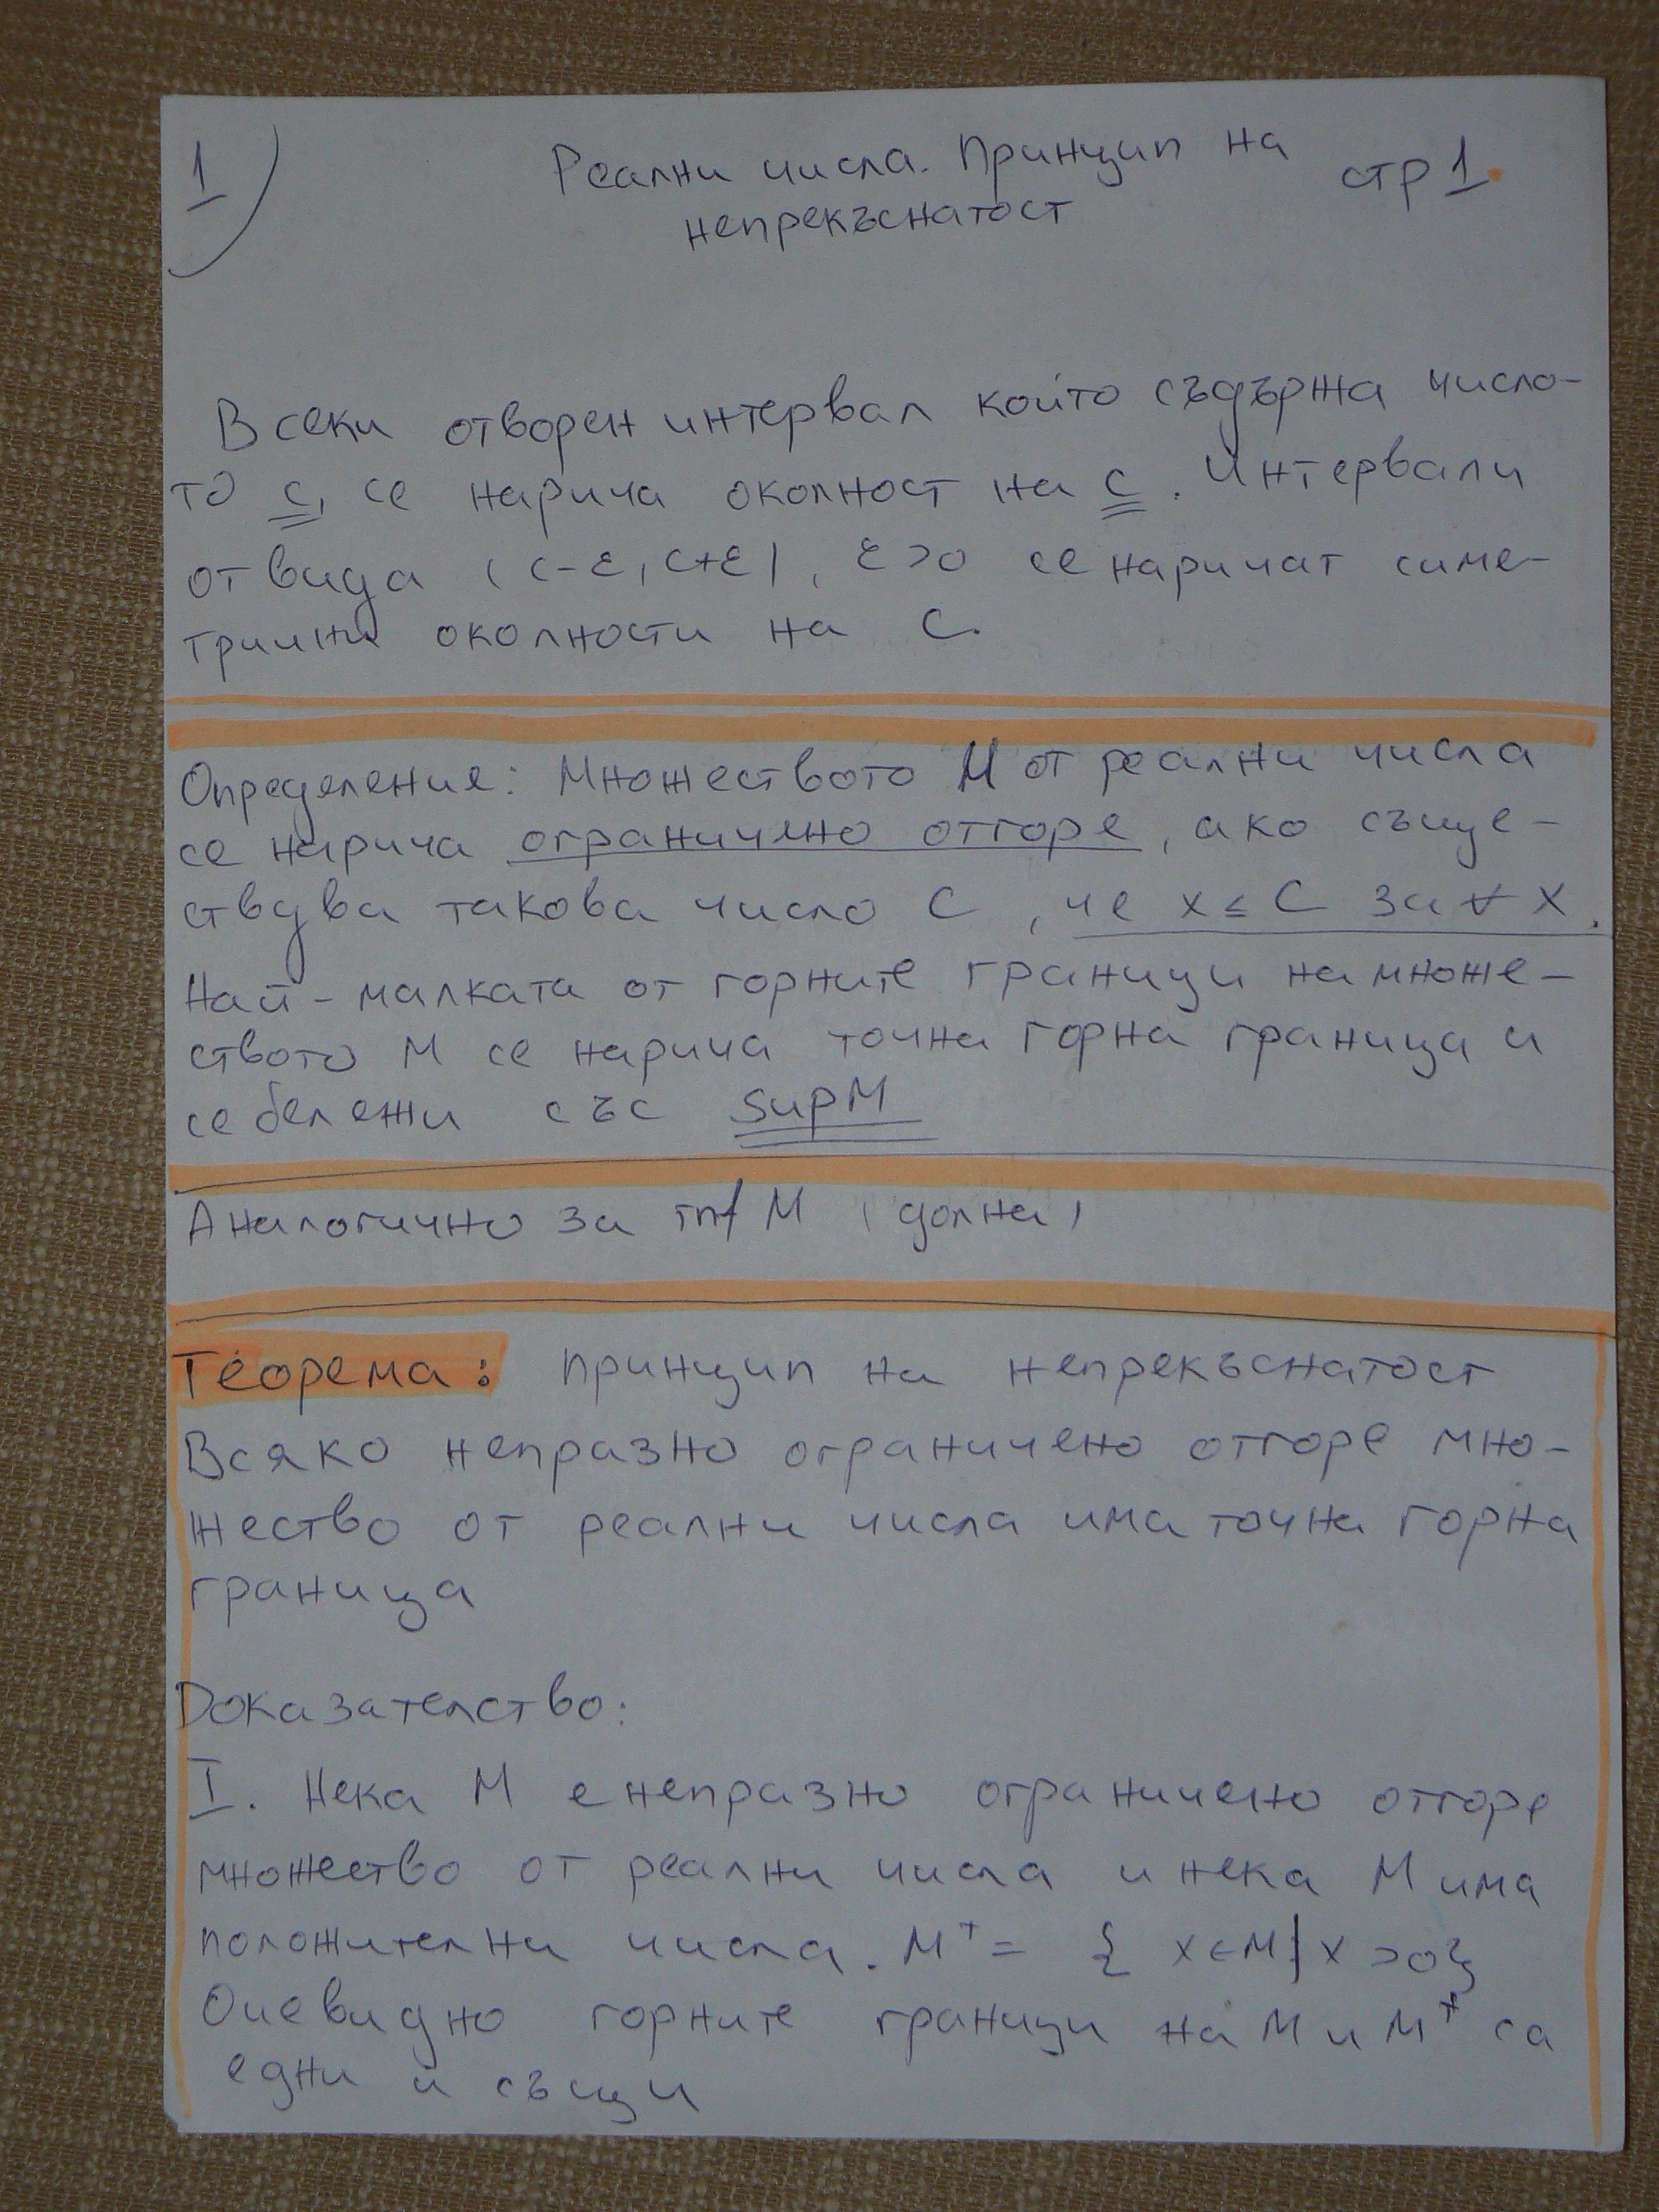 1) Реални числа. Принцип на стр 1.
непрекъснатост
Всеки отворен интервал който съдържа число-
то c, се нарича околност на c. Интервали
от вида (c-ε, c+ε), ε>0 се наричат симе-
трични околности на C.
Определение: Множеството M от реални числа
се нарича ограничено отгоре, ако съще-
ствува такова число C, че x ≤ C за ∀ X.
Най-малката от горните граници на множе-
ството M се нарича точна горна граница и
се бележи със supM
Аналогично за inf M (долна)
Теорема: принцип на непрекъснатост
Всяко непразно ограничено отгоре мно-
жество от реални числа има точна горна
граница
Доказателство:
I. Нека M е непразно ограничено отгоре
множество от реални числа и нека M има
положителни числа. M⁺ = { x∈M | x >0}
Очевидно горните граници на M и M⁺ са
едни и същи